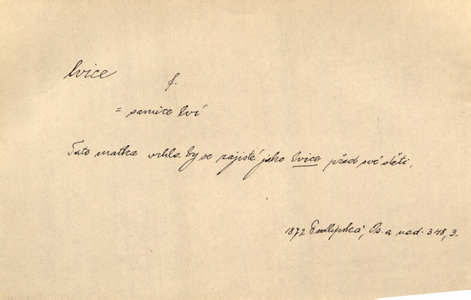 lvice
f.
= samice lví
Tato matka vrhla by se zajisté jako lvice před své děti.
1872 Podlipská, Os. a nad. 348, 3.